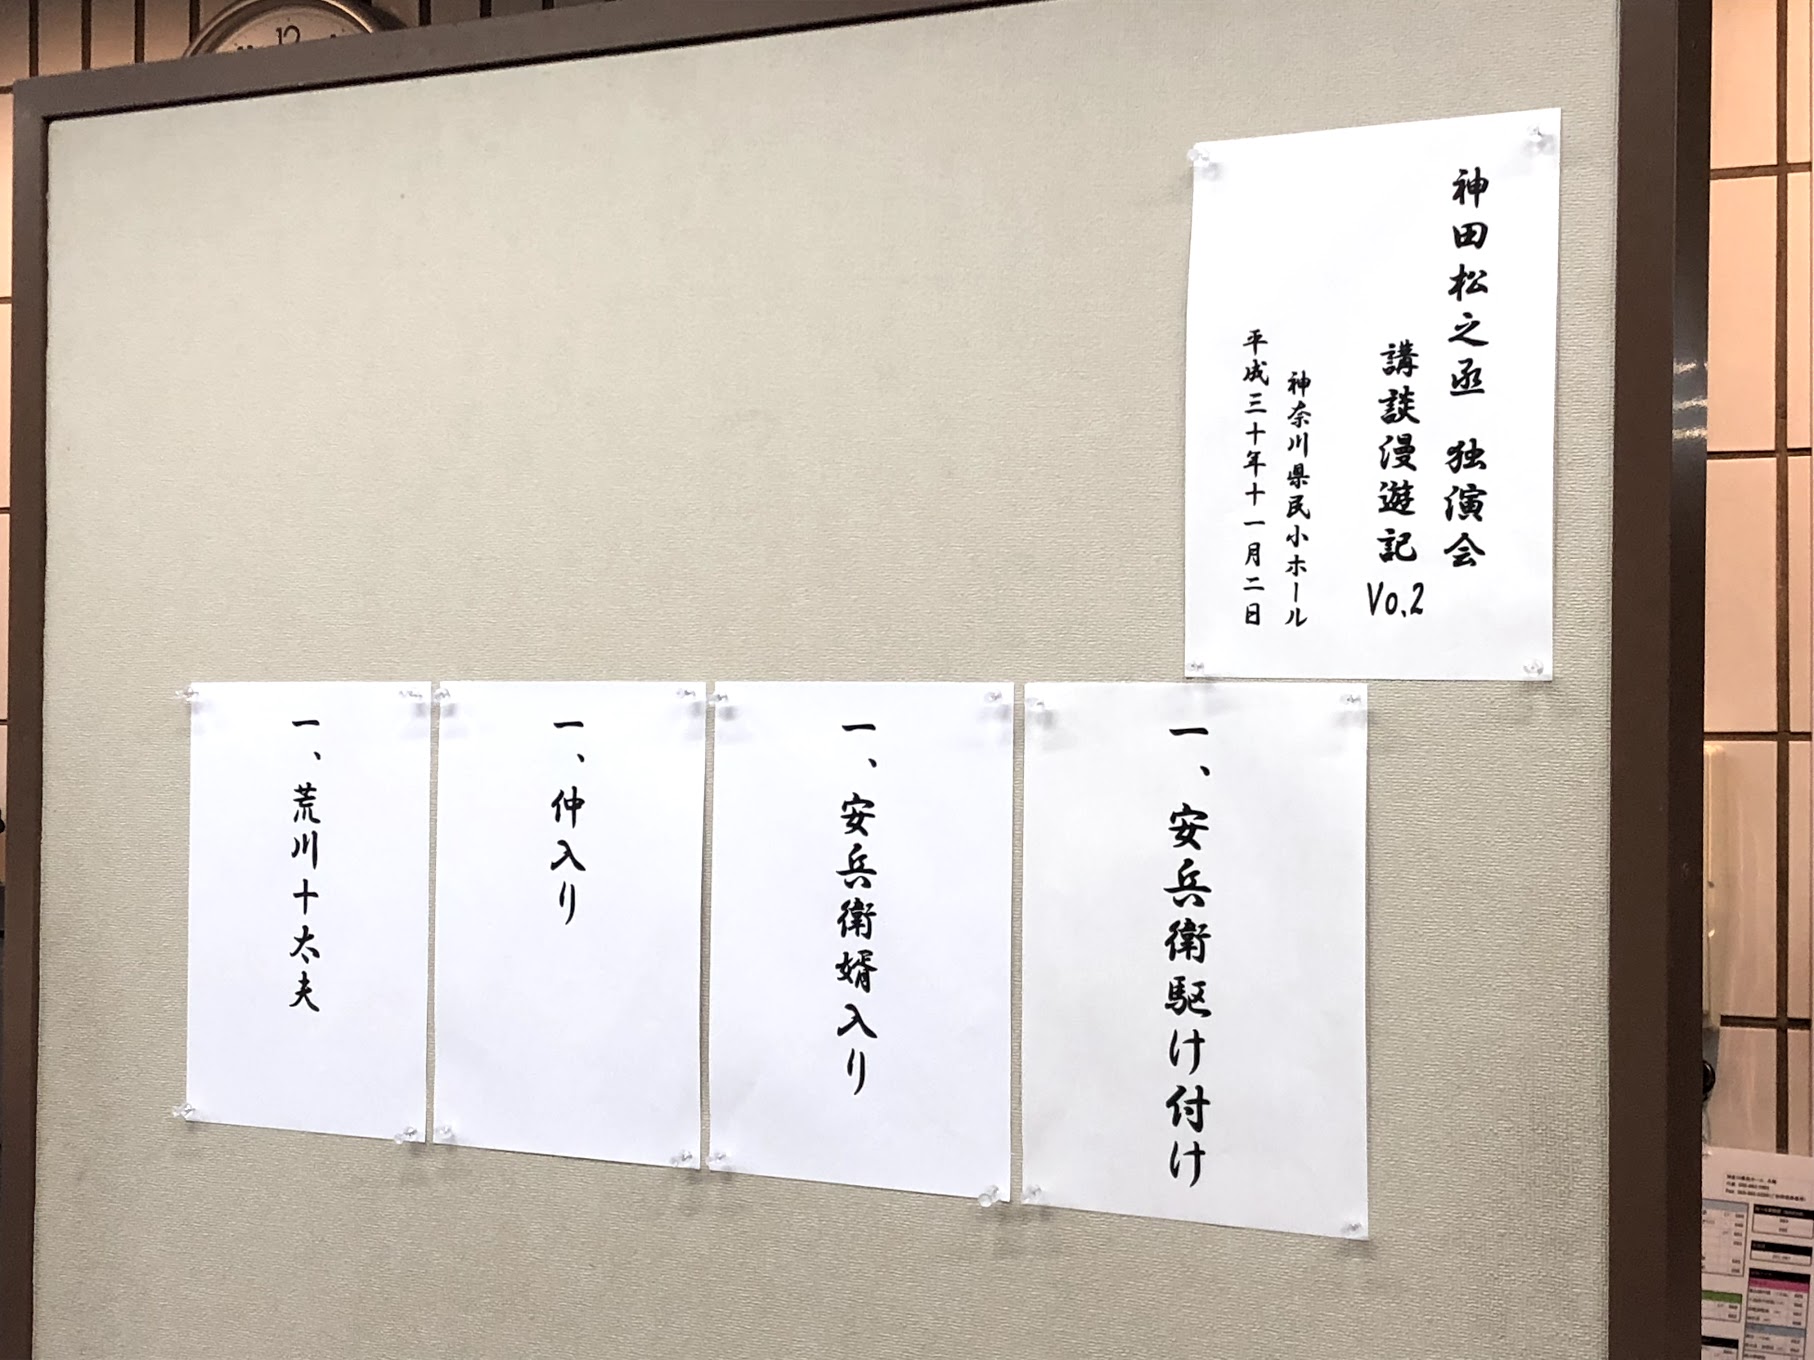 神田松之丞 独演会
講談漫遊記 Vo.2
神奈川県民小ホール
平成三十年十一月二日
一、安兵衛駆け付け
一、安兵衛婿入り
一、仲入り
一、荒川十太夫
12